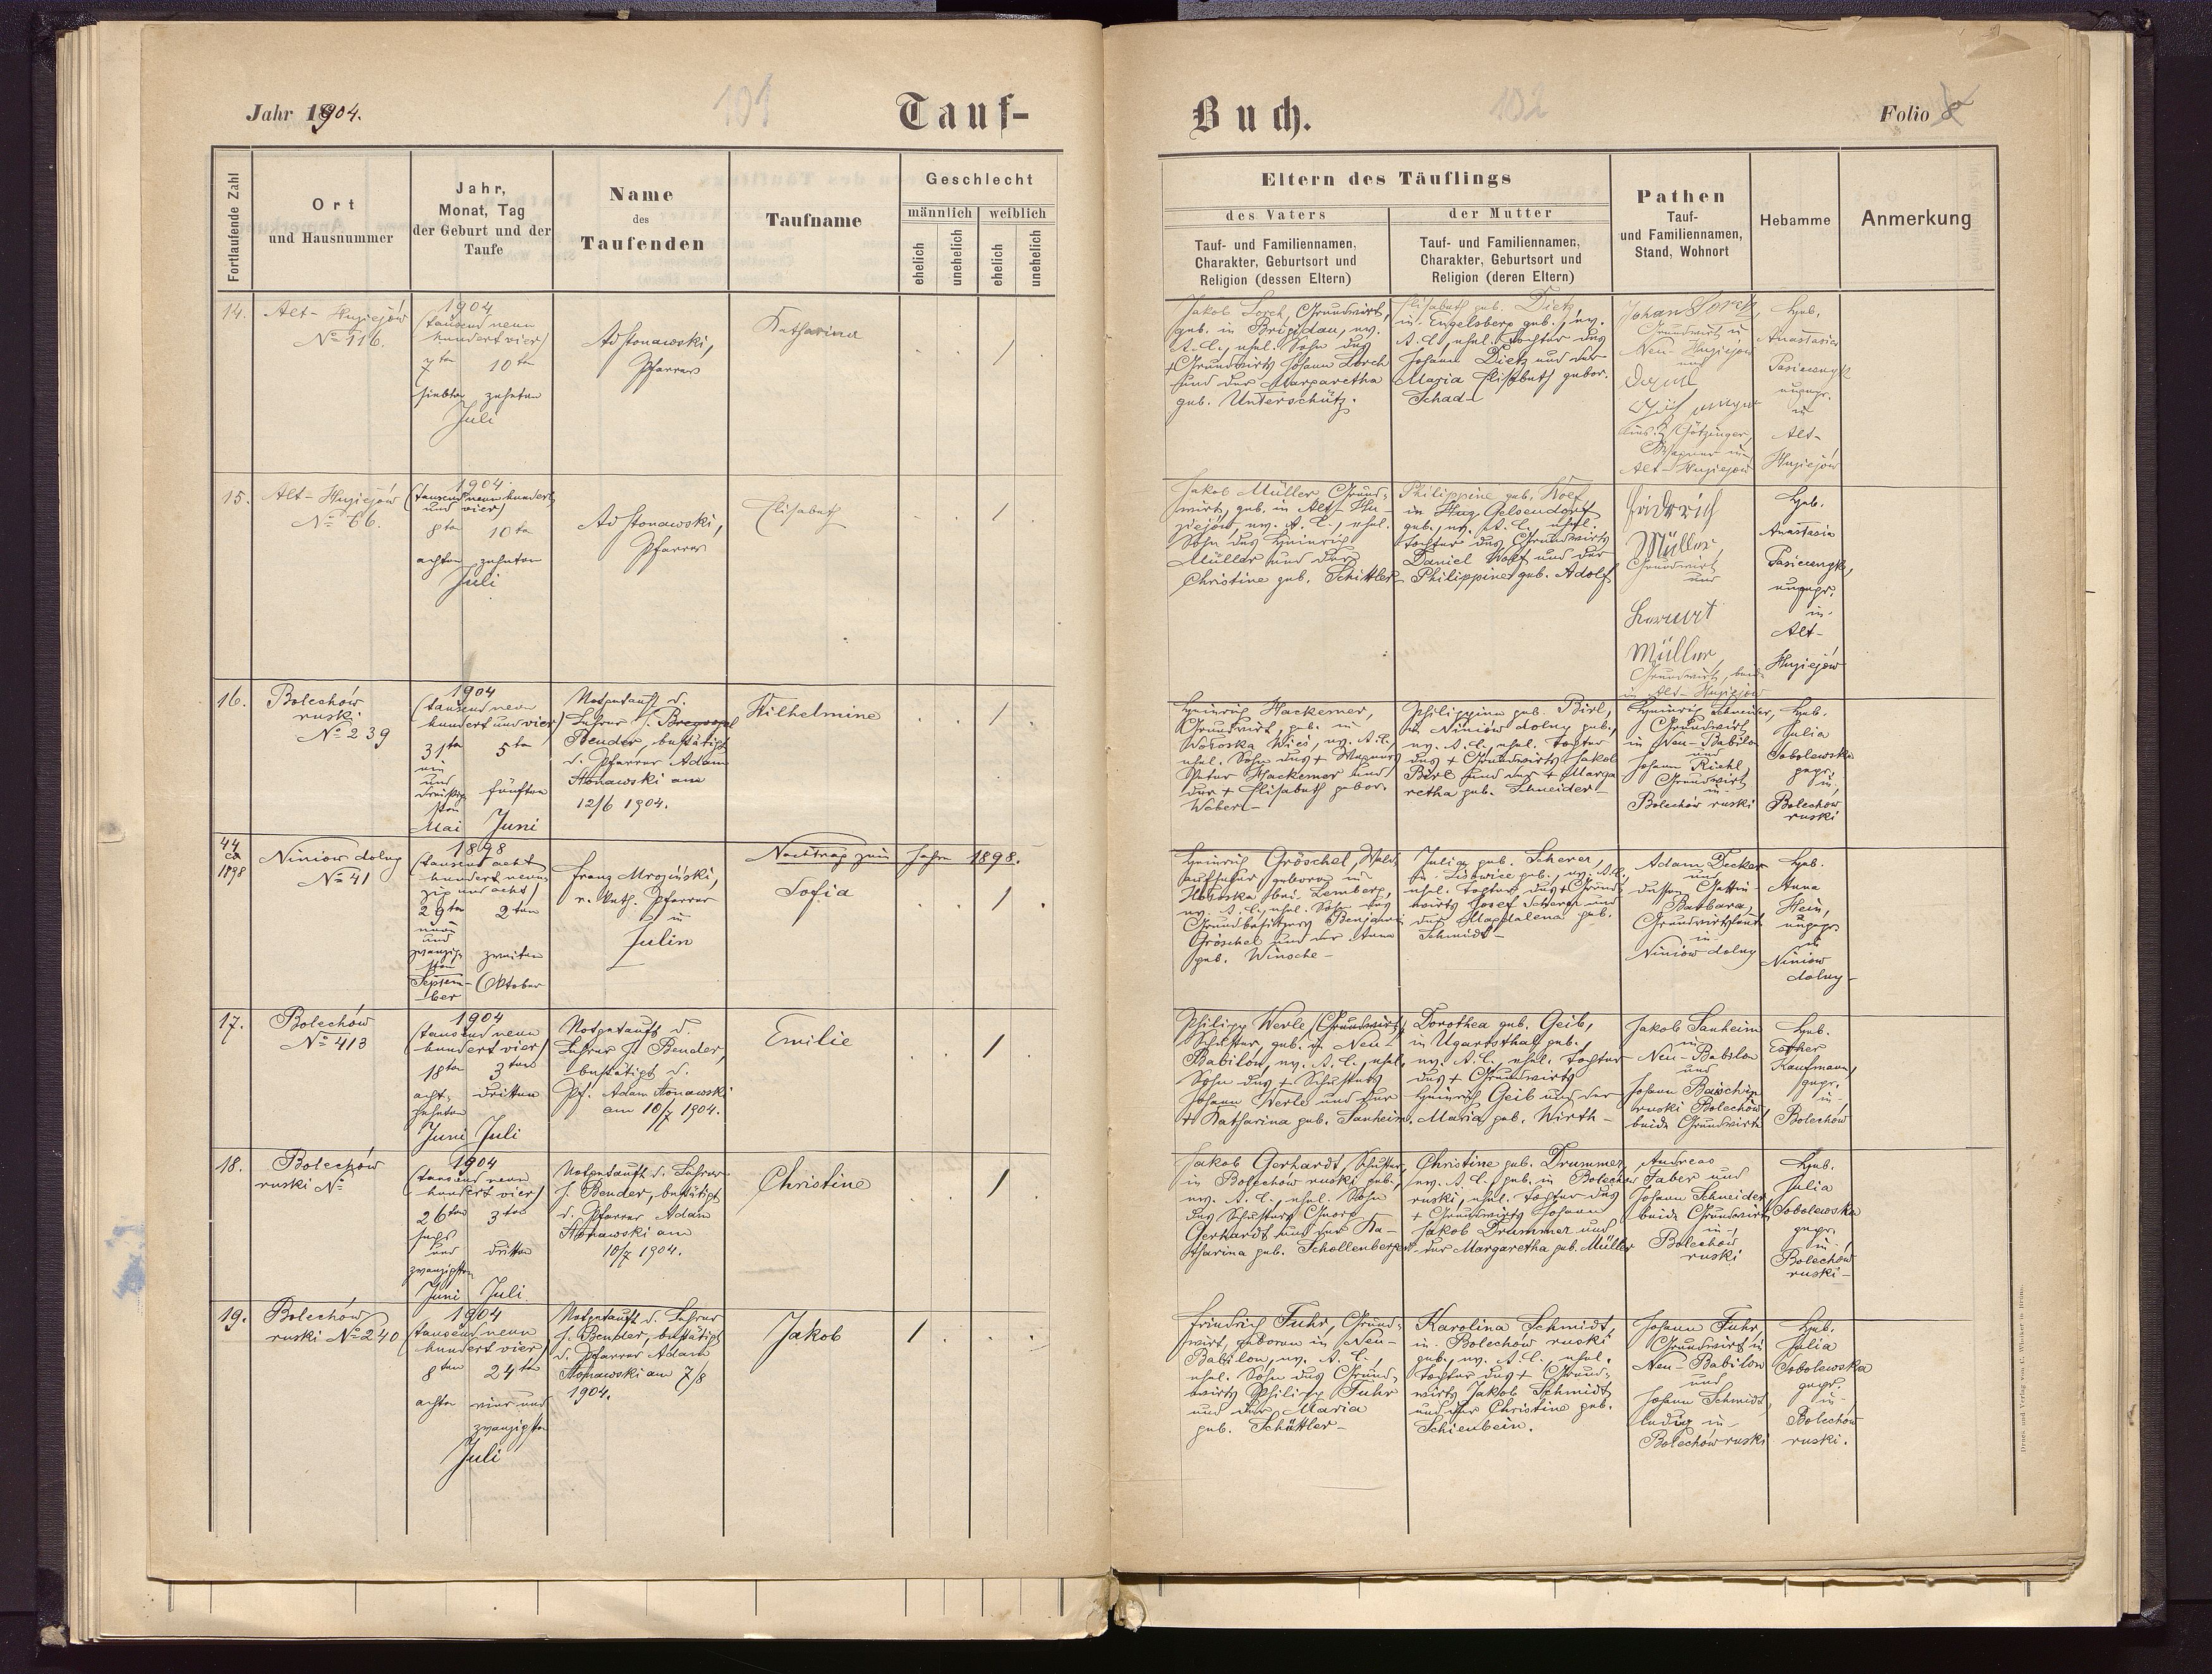 Jahr 1904.
101
Tauf-
Fortlaufende Zahl
Ort
und Hausnummer
Jahr,
Monat, Tag
der Geburt und der
Taufe
Name
des
Taufenden
Taufname
Geschlecht
männlich
weiblich
ehelich
unehelich
ehelich
unehelich
14.
Alt-Hujiejów
№ 116.
1904
(tausend neun
hundert vier)
7ten 10ten
siebten zehnten
Juli
Ad Stonawski,
Pfarrer
Katharina
15.
Alt-Hujiejów
№ 66.
1904.
(tausend neun hundert
und vier)
8ten 10ten
achten zehnten
Juli
Ad Stonawski,
Pfarrer
Elisabeth
16.
Bolechów
ruski
№ 239
1904
(tausend neun
hundert und vier)
31ten 5ten
ein
und
dreißig fünften
sten
Mai Juni
Notgetauft d.
Lehrer J.
Bender, bestätigt
d. Pfarrer Adam
Stonawski am
12/6 1904.
Wilhelmine
44
ex
1898
Niniow dolny
№ 41
1898
(tausend acht
hundert neun
zig und acht)
29ten 2ten
neun
und
zwanzig zweiten
sten
Septem- Oktober
ber
Franz Mroziński,
r. kath. Pfarrer
in
Julin
Nachtrag zum Jahre 1898.
Sofia
17.
Bolechów
№ 413
1904
(tausend neun
hundert vier)
18ten 3ten
acht- dritten
zehnten
Juni Juli
Notgetauft d.
Lehrer J. Bender,
bestätigt d.
Pf. Adam Stonawski
am 10/7 1904.
Emilie
18.
Bolechów
ruski №
1904
(tausend neun
hundert vier)
26ten 3ten
sechs
und dritten
zwanzigsten
Juni Juli
Notgetauft d. Lehrer
J. Bender, bestätigt
d. Pfarrer Adam
Stonawski am
10/7 1904.
Christine
19.
Bolechów
ruski № 240
1904
(tausend neun
hundert vier)
8ten 24ten
achten vier und
zwanzigsten
Juli
Notgetauft d. Lehrer
J. Bender, bestätigt
d. Pfarrer Adam
Stonawski am 7/8
1904.
Jakob
Buch.
102
Folio 8
Eltern des Täuflings
des Vaters
der Mutter
Tauf- und Familiennamen,
Charakter, Geburtsort und
Religion (dessen Eltern)
Tauf- und Familiennamen,
Charakter, Geburtsort und
Religion (deren Eltern)
Pathen
Tauf-
und Familiennamen,
Stand, Wohnort
Hebamme
Anmerkung
Jakob Lorch, Grundwirt,
geb. in Brigidau, ev.
A. C., ehel. Sohn des
+ Grundwirts Johann Lorch
und der Margaretha
geb. Unterschütz.
Elisabeth geb. Dietz,
in Engelsberg geb., ev.
A. C., ehel. Tochter des
Johann Dietz und der
Maria Elisabeth gebor.
Schad-
Johan Lorch
Grundwirt in
Neu-Hujiejow
und
Götzinger,
Wagner in
Alt-Hujiejow
Heb.
Anastasia
ungepr.
in
Alt-
Hujiejów
Jakob Müller Grund-
wirt, geb. in Alt-Hu-
ziejów, ev. A. C., ehel.
Sohn des Heinrich
Müller und der
Christine geb. Schittler
Philippine geb. Wolf
in Gelsendorf
geb., ev. A. C., ehel.
Tochter des Grundwirts
Daniel Wolf und der
Philippine geb. Adolf
Fridrich
Müller,
Grundwirt
und
Müller
Grundwirt, beide
in Alt-Hujiejów
Heb.
Anastasia
ungepr.
in
Alt-
Hujiejów
Heinrich Hackemer,
Grundwirt, geb. in
Woloska Wieś, ev. A. C.,
ehel. Sohn des + Wagners
Peter Hackemer und
der + Elisabeth gebor.
Weber-
Philippine geb. Birl,
in Niniów dolny geb.,
ev. A. C., ehel. Tochter
des + Grundwirts Jakob
Birl und der + Marga
retha geb. Schneider-
Heinrich Schneider,
Grundwirt
in Neu-Babilon
und
Johann Riehl
Grundwirt
in
Bolechów ruski
Heb.
Julia
Sobolewska
gepr.
in
Bolechów
ruski
Heinrich Gröschel, Wald-
aufseher geboren in
bei Lemberg,
ev. A. C., ehel. Sohn des
Grundbesitzers Benjamin
Gröschel und der Anna
geb. Winsche-
Julia geb. Scherer,
in geb., ev. A. C.,
ehel. Tochter des + Grund-
wirts Josef Scherer und
der Magdalena geb.
Schmidt-
Adam Decker
und
dessen Gattin
Barbara,
Grundwirtsleute
in
Niniów dolny
Heb.
Anna
Hein,
ungepr.
in
Niniow
dolny-
Philipp Werle, Grundwirt,
Schuster, geb. in Neu-
Babilon, ev. A. C., ehel.
Sohn des + Schusters
Johann Werle und der
+ Katharina geb. Sanheim.
Dorothea geb. Geib,
in Ugartsthal geb.
ev. A. C., ehel. Tochter
des + Grundwirts
Heinrich Geib und der
Maria geb. Wirth-
Jakob Sanheim
in
Neu-Babilon
und
Johann
ruski Bolechów
beide Grundwirte
Heb.
Esther
Kaufmann,
gepr.
in
Bolechów
Jakob Gerhardt, Schuster,
in Bolechów ruski geb.,
ev. A. C., ehel. Sohn
des Schusters Georg
Gerhardt und der Ka-
tharina geb. Schollenberger
Christine geb. Drummer,
ev. A. C., geb. in Bolechów
ruski, ehel. Tochter des
+ Grundwirts Johann
Jakob Drummer und
der Margaretha geb. Müller
Andreas
Faber und
Johann Schneider
beide Grundwirte
in
Bolechów
ruski
Heb.
Julia
Sobolewska
gepr.
in
Bolechów
ruski-
Friedrich Fuhr, Grund-
wirt, geboren in Neu-
Babilon, ev. A. C.,
ehel. Sohn des Grund-
wirts Philipp Fuhr
und der Maria
geb. Schöttler-
Karolina Schmidt,
in Bolechów ruski
geb., ev. A. C., ehel.
Tochter des + Grund-
wirts Jakob Schmidt
und der Christine geb.
Schienbein.
Johann Fuhr,
Grundwirt in
Neu-Babilon
und
Johann Schmidt,
ledig in
Bolechów ruski
Heb.
Julia
Sobolewska
gepr.
in
Bolechów
ruski.
Druck und Verlag von C. Winiker in Brünn.